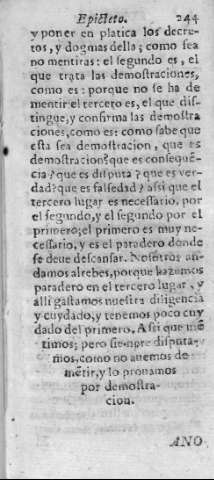 Epicteto. 244
y poner en platica los decre-
tos, y dogmas della; como sea
no mentiras: el segundo es, el
que trata las demostraciones,
como es: porque no se ha de
mentir el tercero es, el que dis-
tingue, y confirma las demostra
ciones, como es: como sabe que
esta sea demostracion, que es
demostracion? que es consequẽ-
cia? que es disputa? que es ver-
dad? que es falsedad? assi que el
tercero lugar es necessario, por
el segundo, y el segundo por el
primero; el primero es muy ne-
cessario, y es el paradero donde
se deue descansar. Nosotros an-
damos alrebes, porque hazemos
paradero en el tercero lugar, y
alli gastamos nuestra diligencia
y cuydado, y tenemos poco cuy
dado del primero. Assi que mẽ
timos; pero siempre disputa-
mos, como no auemos de
mẽtir, y lo prouamos
por demostra-
cion.
ANO